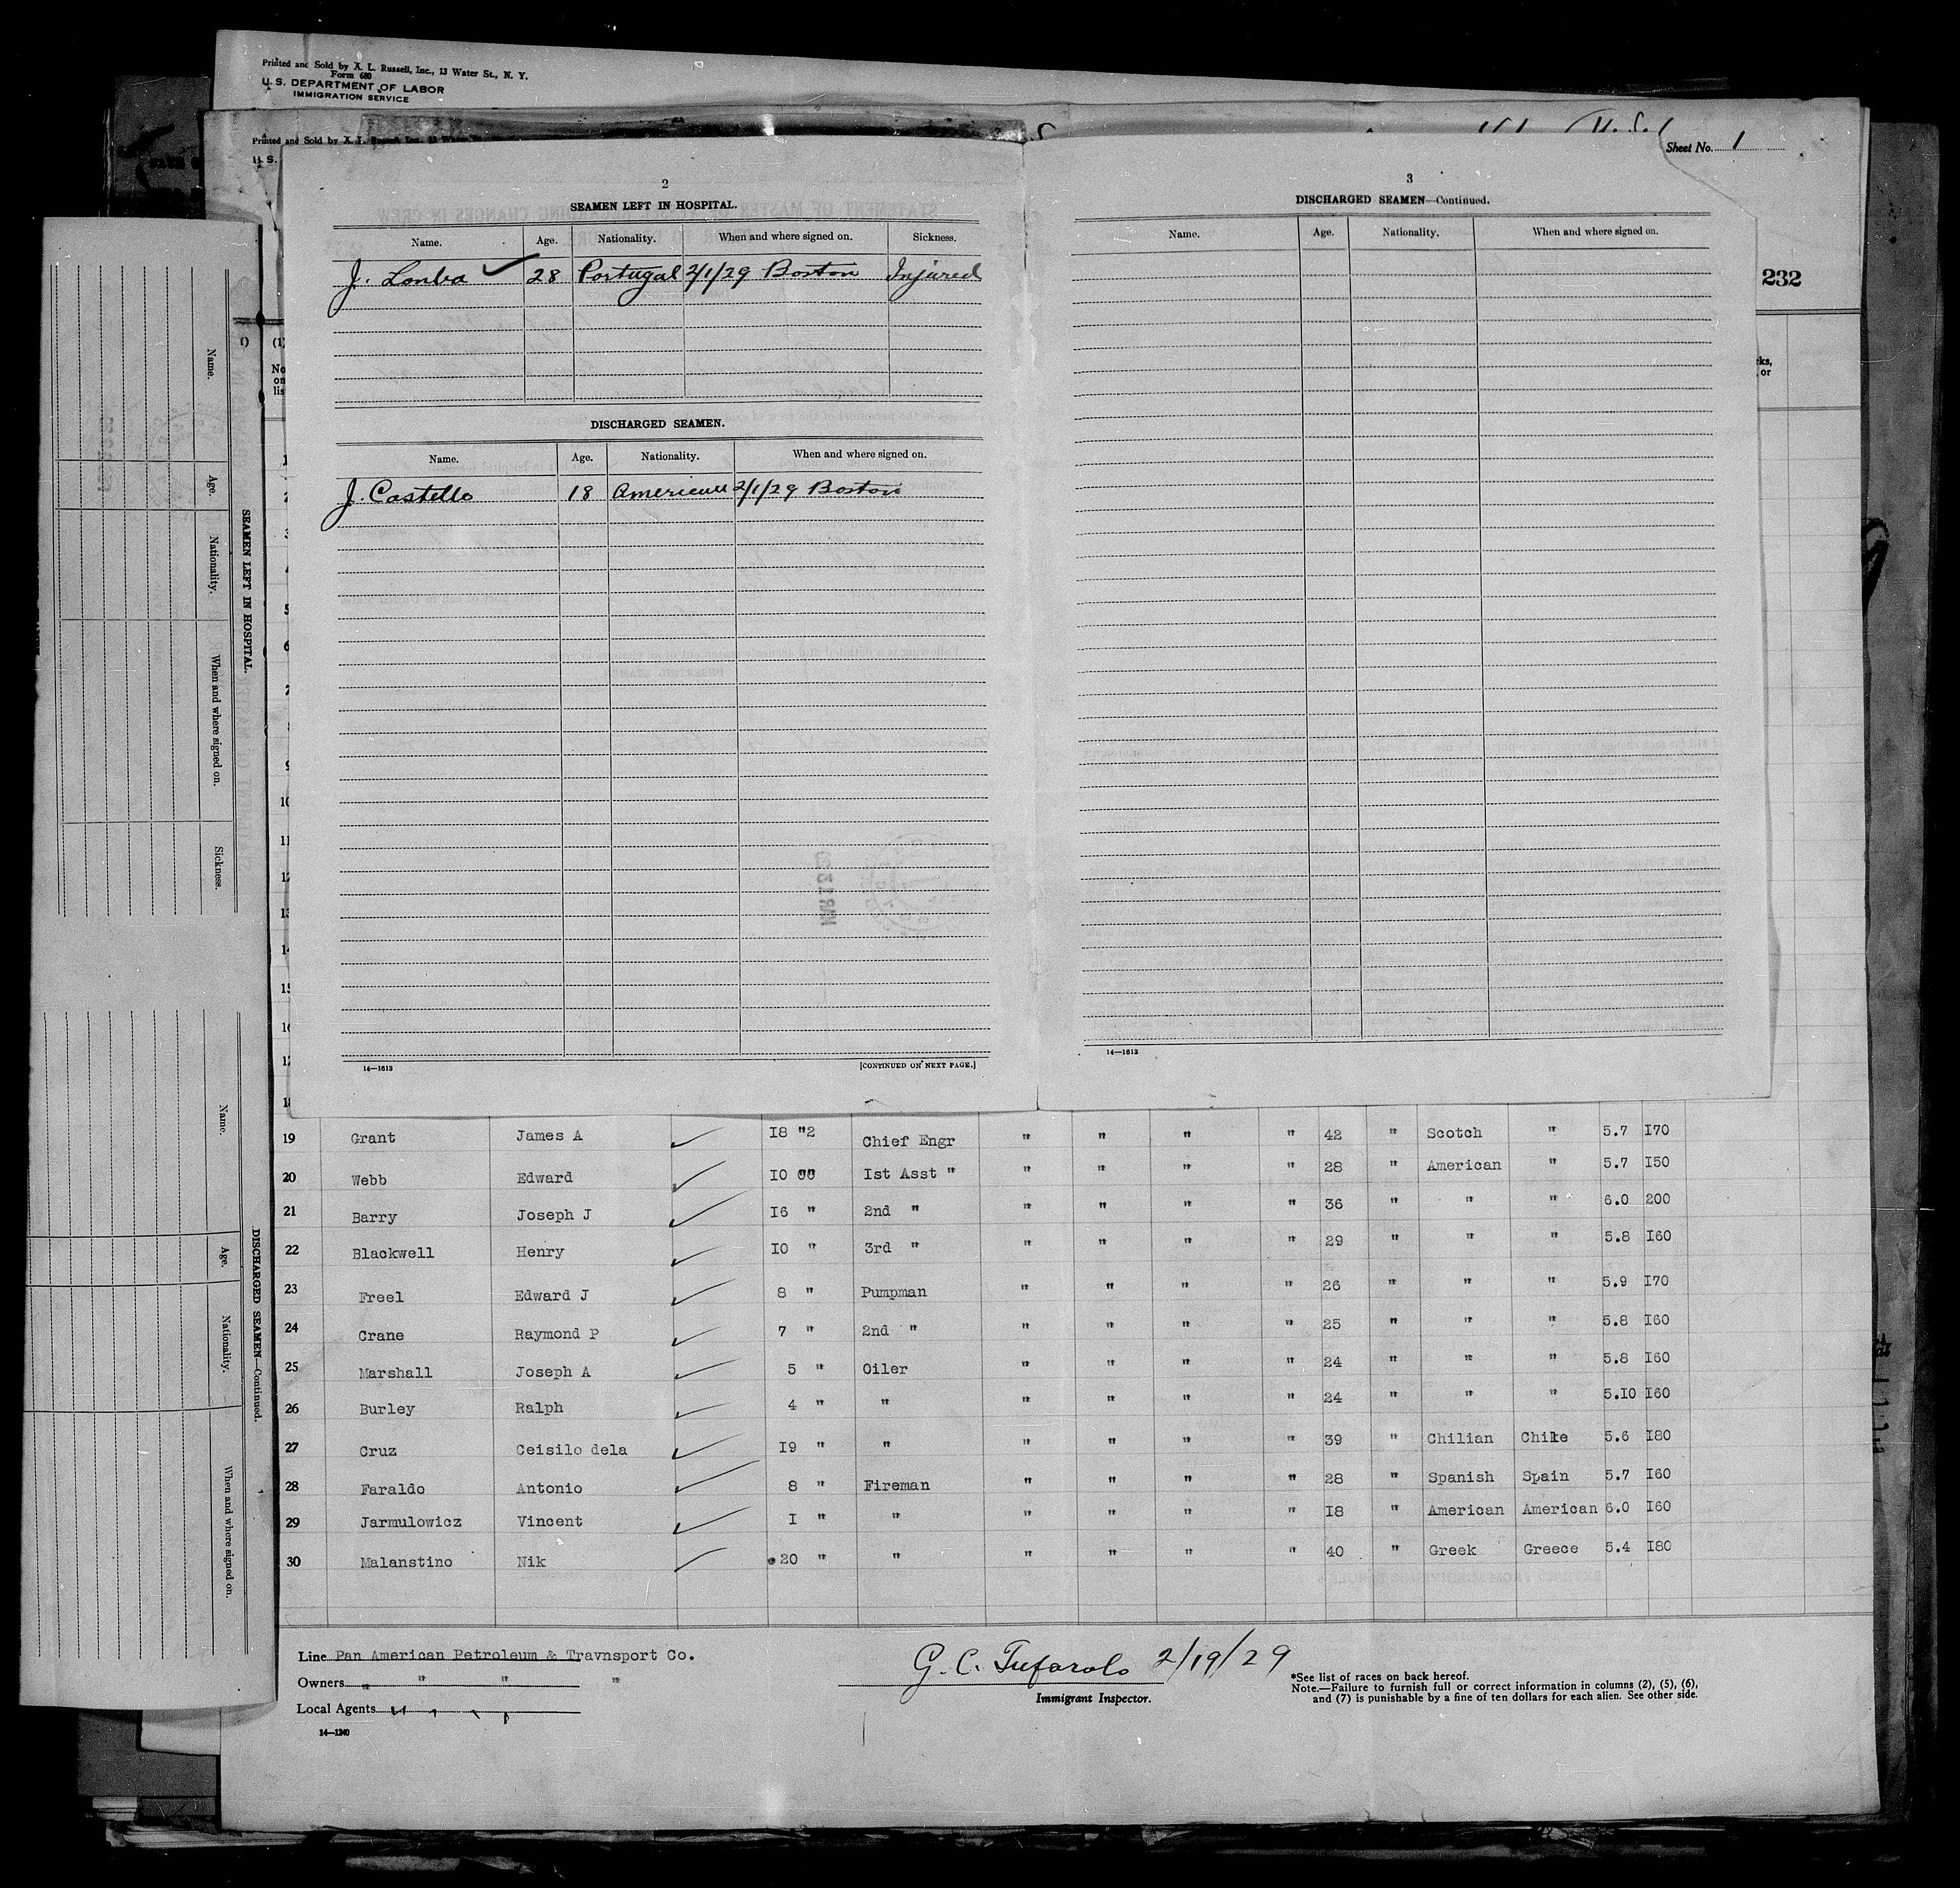 Printed and Sold by X. L. Russell, Inc., 13 Water St., N. Y.
Form 680
U. S. DEPARTMENT OF LABOR
IMMIGRATION SERVICE
Printed and Sold by X. L. Russell Inc. 13 Water
U. S.
Sheet No. 1
232
2
SEAMEN LEFT IN HOSPITAL.
Name. Age. Nationality. When and where signed on. Sickness.
J. Lomba 28 Portugal 2/1/29 Boston Injured
DISCHARGED SEAMEN.
Name. Age. Nationality. When and where signed on.
J. Castello 18 American 2/1/29 Boston
14—1613 [CONTINUED ON NEXT PAGE.]
3
DISCHARGED SEAMEN—Continued.
Name. Age. Nationality. When and where signed on.
14—1613
SEAMEN LEFT IN HOSPITAL.
Name. Age. Nationality. When and where signed on. Sickness.
DISCHARGED SEAMEN—Continued.
Name. Age. Nationality. When and where signed on.
(1)
No
on
lis
19 Grant James A 18 "2 Chief Engr " " " " 42 " Scotch " 5.7 170
20 Webb Edward 10 " 1st Asst " " " " " 28 " American " 5.7 150
21 Barry Joseph J 16 " 2nd " " " " " 36 " " " 6.0 200
22 Blackwell Henry 10 " 3rd " " " " " 29 " " " 5.8 160
23 Freel Edward J 8 " Pumpman " " " " 26 " " " 5.9 170
24 Crane Raymond P 7 " 2nd " " " " " 25 " " " 5.8 160
25 Marshall Joseph A 5 " Oiler " " " " 24 " " " 5.8 160
26 Burley Ralph 4 " " " " " " 24 " " " 5.10 160
27 Cruz Ceisilo dela 19 " " " " " " 39 " Chilian Chile 5.6 180
28 Faraldo Antonio 8 " Fireman " " " " 28 " Spanish Spain 5.7 160
29 Jarmulowicz Vincent 1 " " " " " " 18 " American American 6.0 160
30 Malanstino Nik 20 " " " " " " 40 " Greek Greece 5.4 180
Line Pan American Petroleum & Travnsport Co.
Owners " " "
Local Agents " " " "
14—1240
G. C. Tufarolo 2/19/29
Immigrant Inspector.
*See list of races on back hereof.
Note.—Failure to furnish full or correct information in columns (2), (5), (6),
and (7) is punishable by a fine of ten dollars for each alien. See other side.